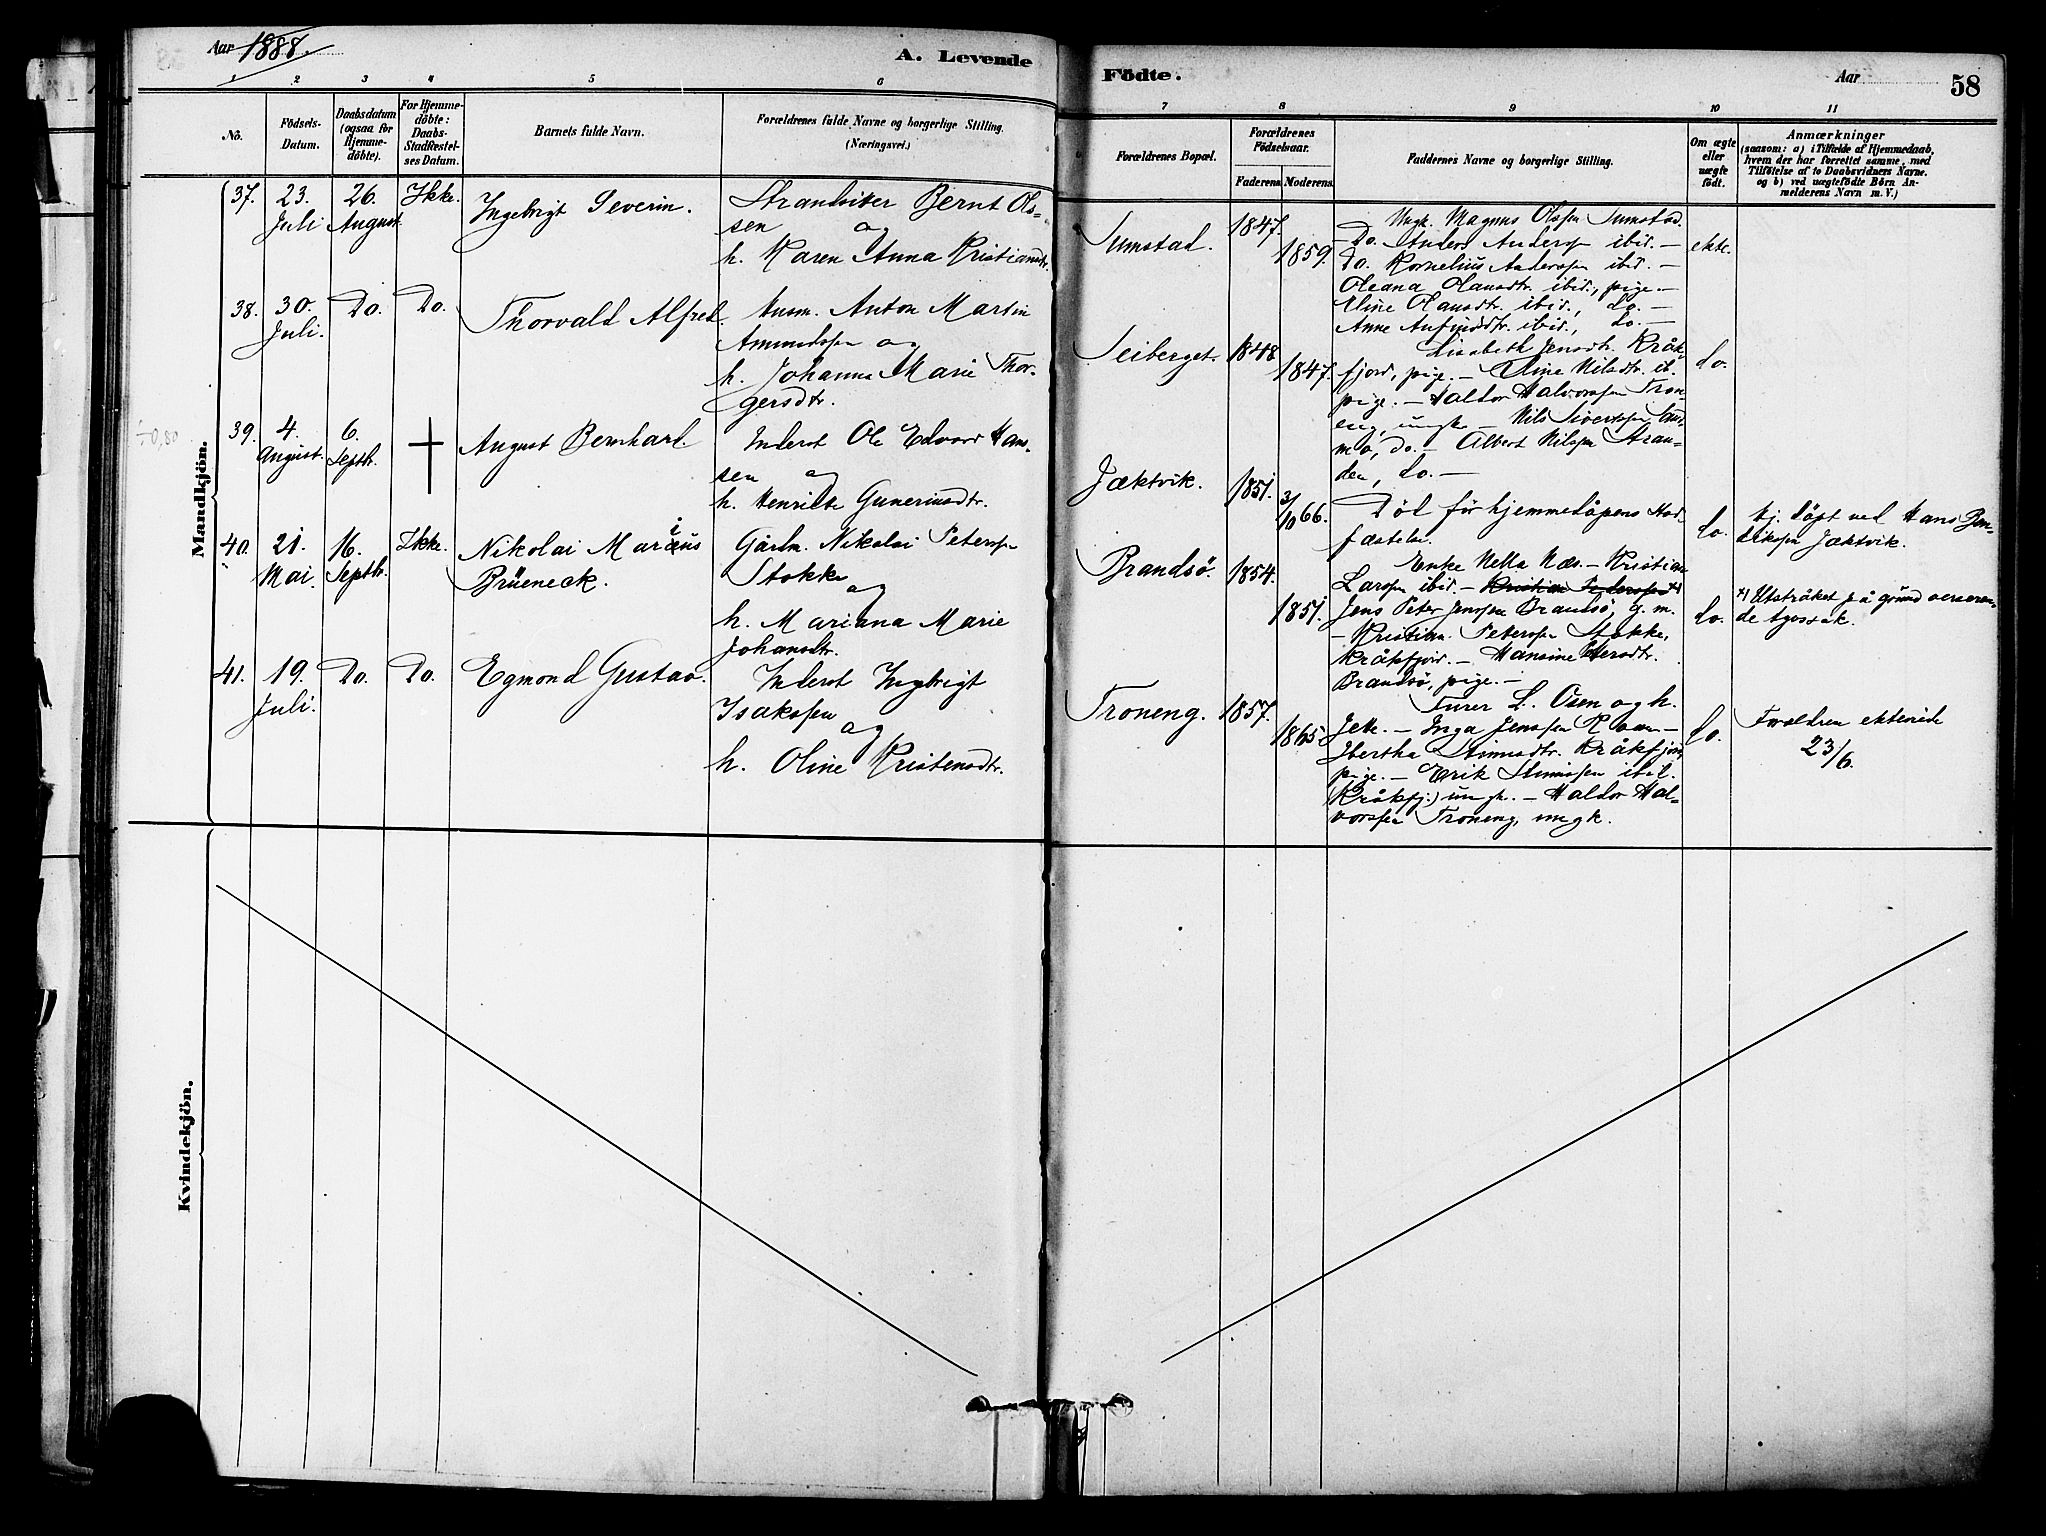 Aar 1888.
A. Levende
Födte.
Aar
58
1 2 3 4 5 6 7 8 9 10 11
No.
Födsels-
Datum.
Daabsdatum
(ogsaa for
Hjemme-
döbte).
For Hjemme-
döbte:
Daabs-
Stadfæstel-
ses Datum.
Barnets fulde Navn.
Forældrenes fulde Navne og borgerlige Stilling.
(Næringsvei.)
Forældrenes Bopæl.
Forældrenes
Födselsaar.
Faderens. Moderens.
Faddernes Navne og borgerlige Stilling.
Om ægte
eller
uægte
födt.
Anmærkninger
(saasom: a) i Tilfælde af Hjemmedaab,
hvem der har forrettet samme, med
Tilföielse af to Daabsvidners Navne.
og b) ved uægtefödte Börn An-
melderens Navn m. V.)
Mandkjön.
37. 23.
Juli
26.
August.
Ikke.
Ingebrigt Severin.
Strandsitter Bernt Ols-
sen og
h. Karen Anna Kristiansdtr.
Sumstad.
1847.
1859.
Ungk. Magnus Olsen Sumstad.
- Do. Anders Andersen ibid. -
Do. Kornelius Andersen ibid. -
Oleana Olausdtr. ibid., pige. -
Oline Olausdtr. ibid., do. -
Anne Anfindsdtr. ibid., do. -
ekte.
38. 30.
Juli.
Do.
Do.
Thorvald Alfred.
Husm. Anton Martin
Ammundsen og
h. Johanna Marie Thor-
gersdtr.
Seiberget.
1848
1847.
Lisabeth Jensdtr. Kråk-
fjord, pige. - Oline Nilsdtr. ib.
pige. - Haldor Halvorsen Tron-
eng, ungk. - Nils Sivertsen Sand-
mo, do. - Albert Nilsen Stran-
den, do. -
do.
÷0,80
39. 4.
August.
6.
Septb.
August Bernhard.
Inderst Ole Edvard Han-
sen og
h. Henrikke Guneriusdtr.
Jæktvik.
1851.
3/10 66.
Död för hjemmedåpens stad-
fæstelse.
do.
Hj. döpt ved Hans Ben-
diksen Jæktvik.
40. 21.
Mai.
16.
Septb.
Ikke.
Nikolai Marius
Brüeneck.
Gårdm. Nikolai Petersen
Stokke
og
h. Mariana Marie
Johansdtr.
Brandsö.
1854.
1851.
Enke Nella Næs. - Kristian
Larsen ibid. - Kristian Pedersen *)
Jens Peter Jensen Brandsö, g.m.
- Kristian Petersen Stokke,
Kråkfjord. - Hansine Petersdtr.
Brandsö, pige. -
do.
*) Utströket på grund av
41. 19.
Juli.
Do.
Do.
Egmond Gustav.
Inderst Ingebrigt
Isaksen
og
h. Oline Kristensdtr.
Troneng.
1857.
1865.
Furer L. Osen og h.
Jette. - Inga Jensen -
Ibertha Simonsdtr. Kråkfjord,
pige. - Erik Simonsen ibid.
(Kråkfj.) ungk. - Haldor Hal-
vorsen Troneng, ungk.
do.
Foreldren ekteviede
23/6.
Kvindekjön.